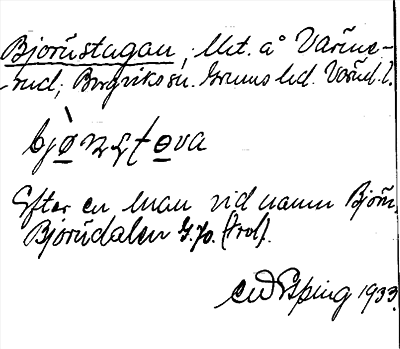 Björnstugan, Ut. å Värme-
-rud, Borgviks sn. Grums hd. Värml. l.
bjø̀ṇṣtøva
Efter en man vid namn Björn,
Björndalen G.jo. (trol).
C W Esping 1933.